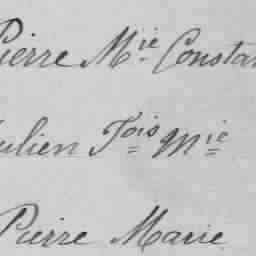 Pierre Mie Constan
ulien Fois Mie
Pierre Marie